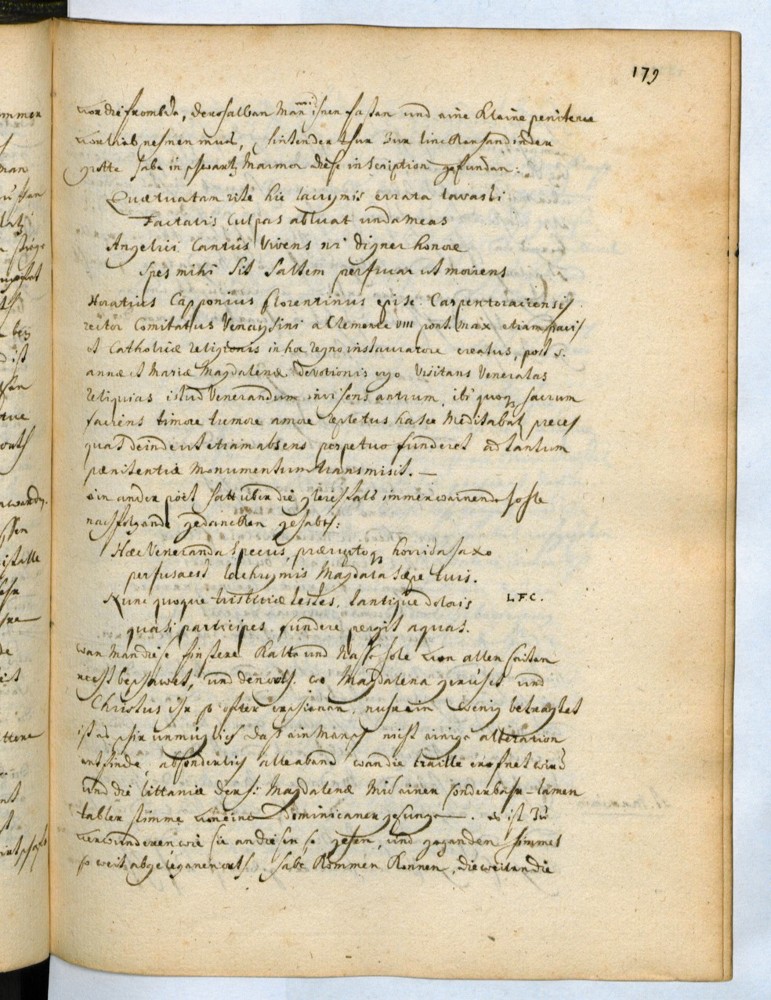 179
von die frombde, deroselben Man mit ihnen fasten und eine kleine penitence
vorlieb nehmen mus, hinder der thür zur lincken hand in der
grotte habe in schwartz Marmor diese inscription gefunden:
Quæ tua tam ritè hic lacrymis errata lavasti
Factaris culpas abluat unda meas
Angelici cantus vivens ni digner honore
Spes mihi sit saltem perfruar ut moriens
Horatius Capponius florentinus epise. Carpentoraciensis
rector Comitatus Venaysini a Clemente VIII pont. max etiam pacis
et Catholicæ religionis in hoc regno instauratore creatus, post S.
annæ et Mariæ Magdalenæ devotionis ergo visitans Veneratas
reliquias istud Venerandum invisens antrum, ibi quoq, sacrum
faciens timore tumore amore repletus hasce Meditabat preces
quas deinde ut etiam absens perpetuo funderet ad tantum
pænitentiæ monumentum transmisit. —
ein ander poet hatt über die gleichfals immer weinende hohle
nachfolgende gedancken gehabt:
Hæc Veneranda specus, præruptoq, horrida saxo
perfusa est lachrymis Magdala sæpe tuis.
Nunc quoque tristitiæ testes, tantique doloris L.F.C.
quasi participes, fundere pergit aquas.
wan man diese finstere kalte und nasse hole von allen seiten
recht beschawet, und den orth, wo Magdalena geruhet und
Christus ihr so offter erschienen, nuhr ein wenig betrachtet
ist es schir unmüglich das ein Mensch nicht einige alteration
entfinde, absonderlich alle abend wan die traille eröfnet wird
und die littaniæ der h: Magdalenæ mid einer sonderbahr-lamen
tablen stimme von eine Dominicaner gesungen. es ist zu
verwunderen wie sie an diesen so hohen, und gegen den himmel
so weit abgelegenen orth habe kommen können, die weilen die